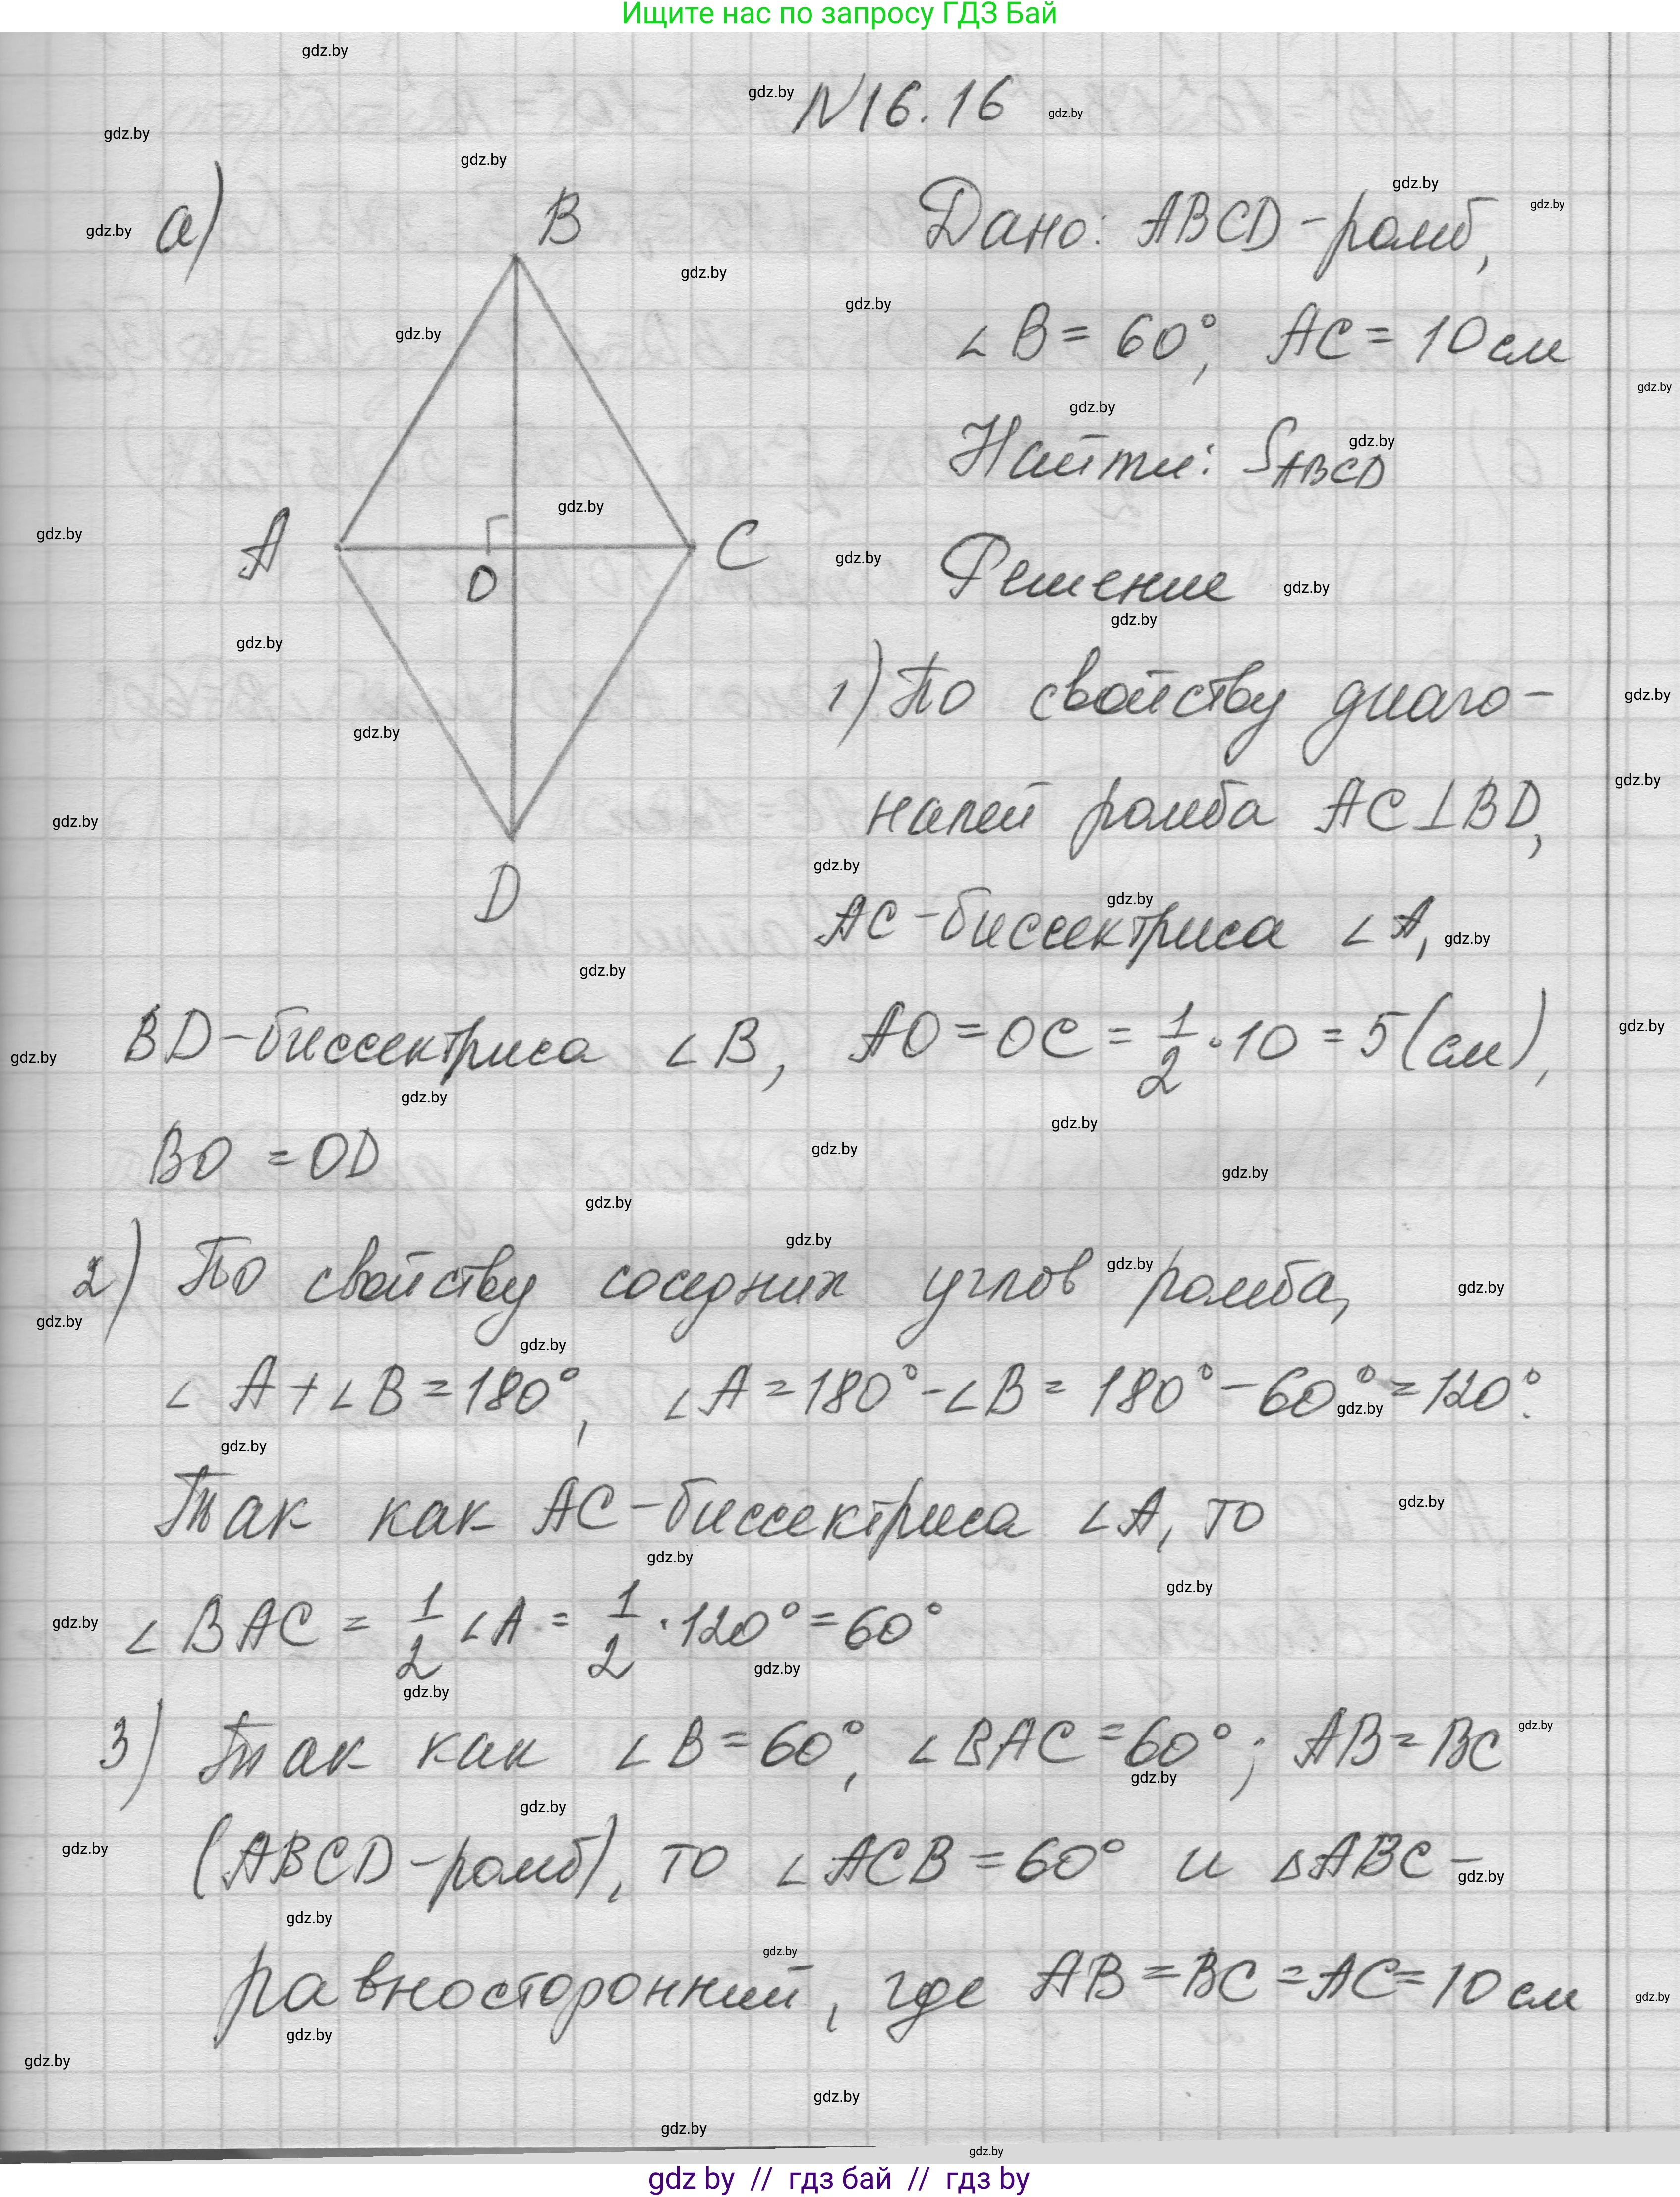 Ищите нас по запросу ГДЗ Бай
N16.16
а)
B
A
O
C
D
Дано: ABCD - ромб,
∠B = 60°, AC = 10 см
Найти: S_ABCD
Решение
1) По свойству диаго-
налей ромба AC⊥BD,
AC - биссектриса ∠A,
BD - биссектриса ∠B, AO = OC = 1/2 · 10 = 5 (см),
BO = OD
2) По свойству соседних углов ромба,
∠A + ∠B = 180°, ∠A = 180° - ∠B = 180° - 60° = 120°.
Так как AC - биссектриса ∠A, то
∠BAC = 1/2 ∠A = 1/2 · 120° = 60°
3) Так как ∠B = 60°, ∠BAC = 60°; AB = BC
(ABCD - ромб), то ∠ACB = 60° и △ABC -
равносторонний, где AB = BC = AC = 10 см
gdz by // гдз бай // гдз by
gdz.by